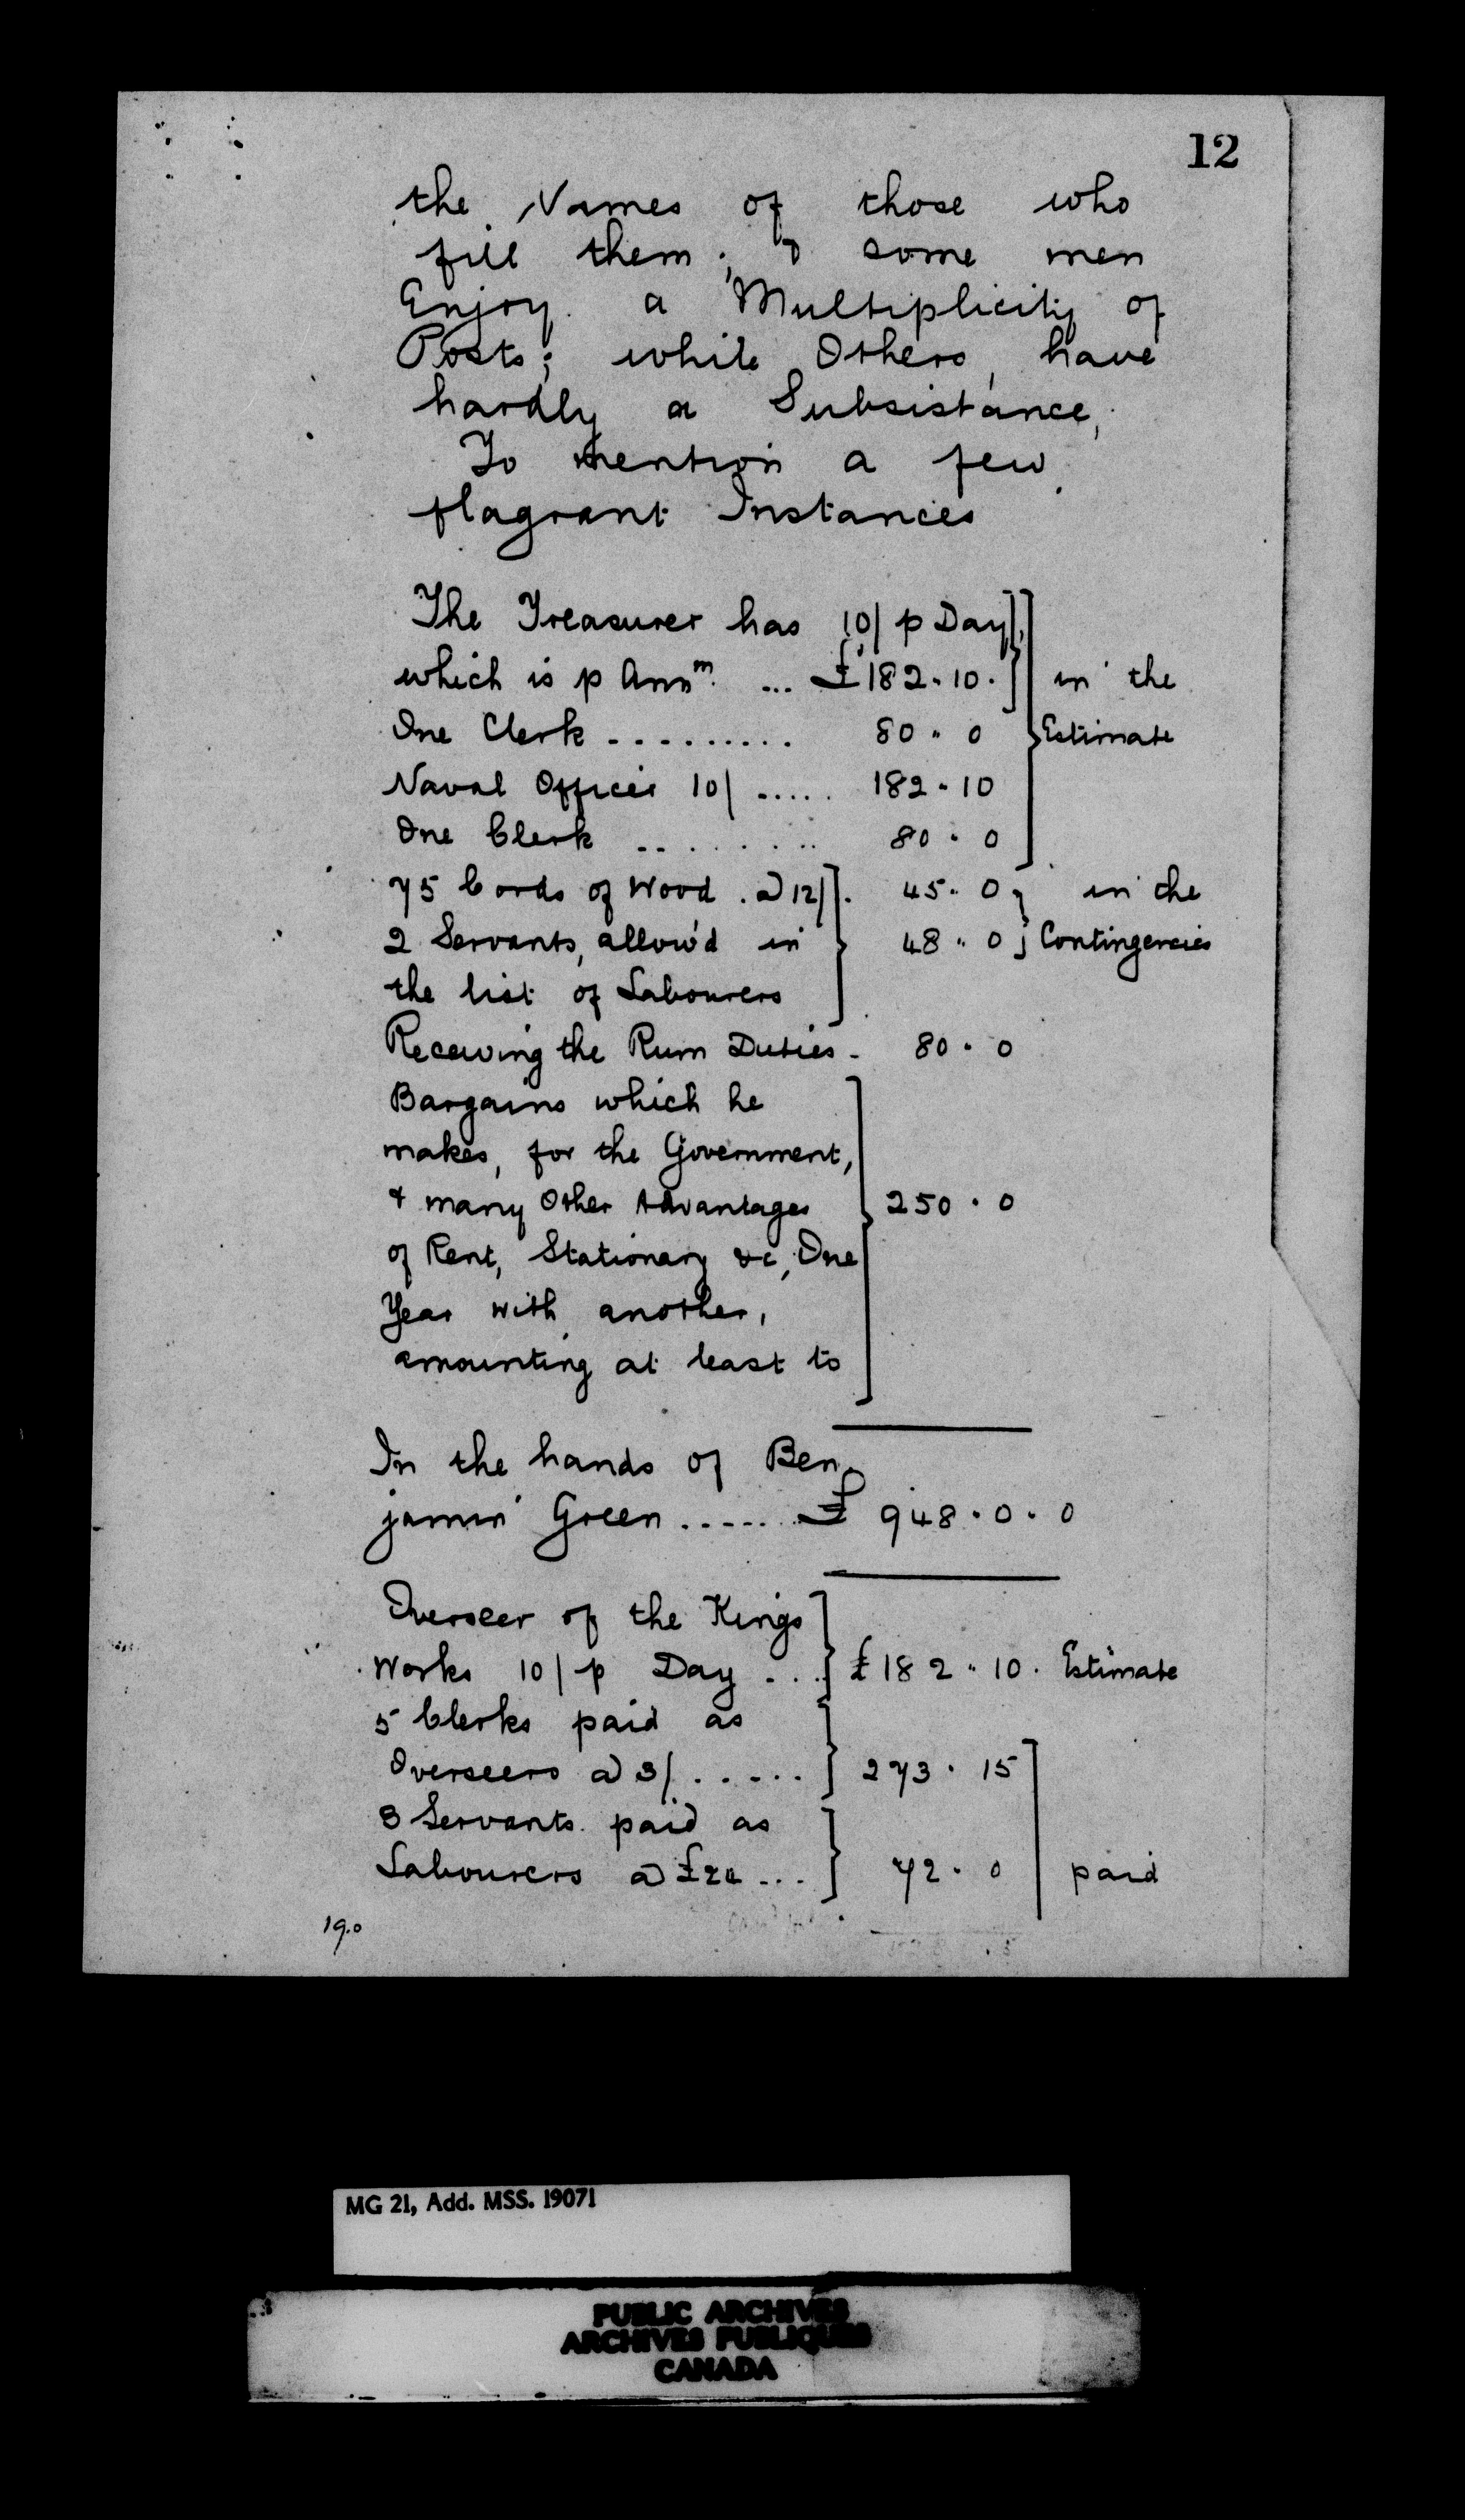 12
the Names of those who
fill them; & some men
Enjoy a Multiplicity of
Posts; while Others, have
hardly a Subsistance,
To mention a few
flagrant Instances
The Treasurer has 10/ p Day
which is p Annm. ... £182.10. in the
One Clerk ......... 80 " 0 Estimate
Naval Officer 10/ ..... 182 " 10
One Clerk ......... 80 . 0
75 Cords of Wood . a 12/. 45 . 0 in the
2 Servants, allow'd in 48 " 0 Contingencies
the list of Labourers
Receiving the Rum Duties - 80 . 0
Bargains which he
makes, for the Government,
& many Other Advantages 250 . 0
of Rent, Stationary &c, One
Year with another,
amounting at least to
In the hands of Ben-
jamin Green ...... £ 948 . 0 . 0
Overseer of the Kings
Works 10/ p Day ... £182 " 10 . Estimate
5 Clerks paid as
Overseers a 3/ ..... 273 . 15
3 Servants paid as
Labourers a £24 ... 72 . 0 paid
19.0
MG 21, Add. MSS. 19071
PUBLIC ARCHIVES
ARCHIVES PUBLIQUES
CANADA